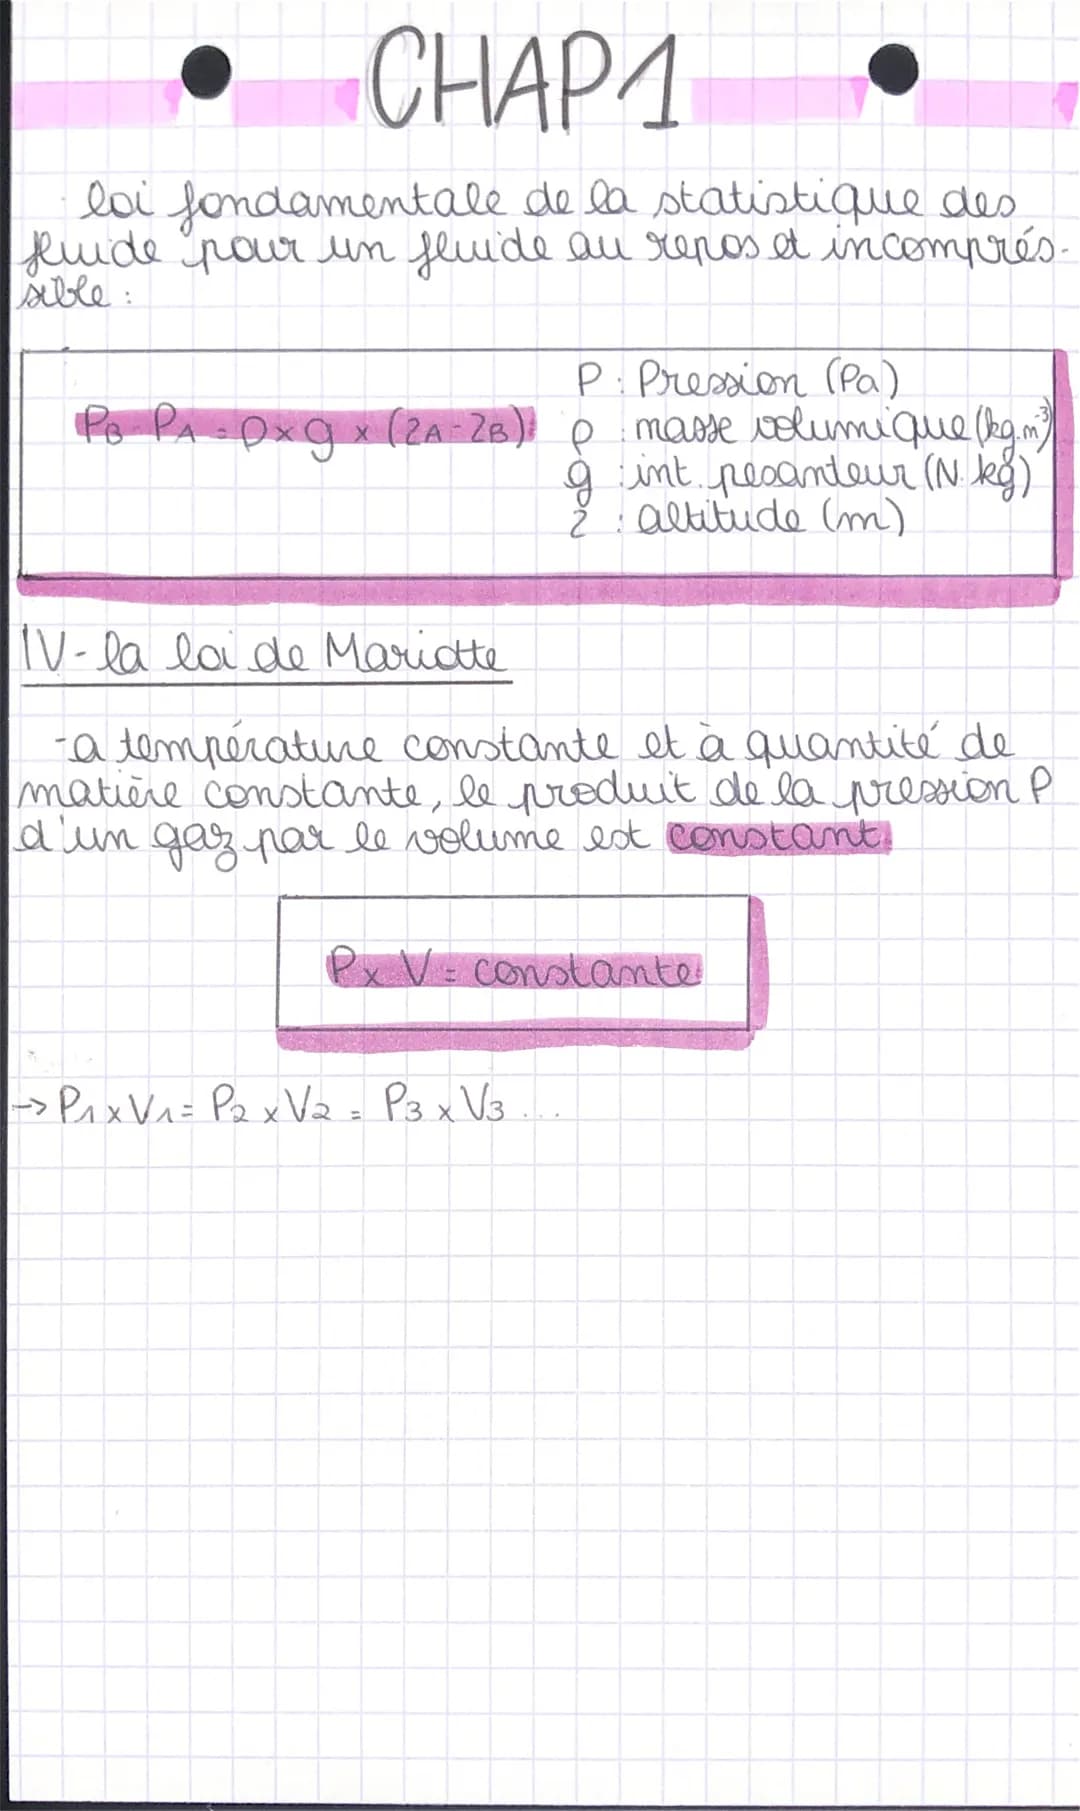 CHAP1
loi fondamentale de la statistique des
fluide pour un fluide au repos et incomprés-
sible :
P : Pression (Pa)
PB - PA = ρ x g x (zA - zB) ρ : masse volumique (kg.m⁻³)
g : int. pesanteur (N.kg)
z : altitude (m)
IV - la loi de Mariotte
- a température constante et à quantité de
matière constante, le produit de la pression P
d'un gaz par le volume est constant.
P x V = constante
→ P1 x V1 = P2 x V2 = P3 x V3 ...